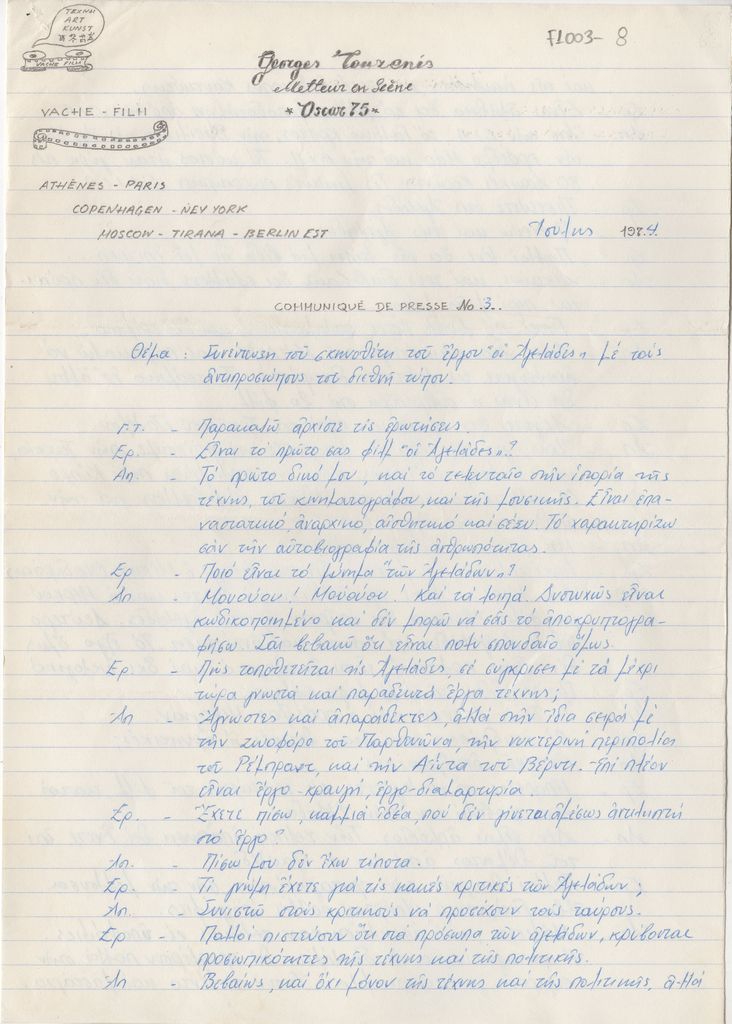 ΤΕΧΝΗ
ART
KUNST
VACHE FILM
FL003- 8
Georges Tourenis
Metteur en Scène
* Oscar 75 *
VACHE - FILM
ATHÈNES - PARIS
COPENHAGEN - NEY YORK
MOSCOW - TIRANA - BERLIN EST
Ἰούλης 1974.
COMMUNIQUÉ DE PRESSE No 3..
Θέμα : Συνέντευξη τοῦ σκηνοθέτη τοῦ ἔργου "οἱ Ἀγελάδες" μέ τούς
ἀντιπροσώπους τοῦ διεθνῆ τύπου.
Γ.Τ. - Παρακαλῶ ἀρχίστε τίς ἐρωτήσεις.
Ερ. - Εἶναι τό πρῶτο σας φίλμ "οἱ Ἀγελάδες"?
Απ. - Τό πρῶτο δικό μου, καί τό τελευταῖο στήν ἱστορία τῆς
τέχνης, τοῦ κινηματογράφου, καί τῆς μουσικῆς. Εἶναι ἐπα-
ναστατικό, ἀναρχικό, αἰσθητικό καί σέξυ. Τό χαρακτηρίζω
σάν τήν αὐτοβιογραφία τῆς ἀνθρωπότητας.
Ερ - Ποιό εἶναι τό μήνυμα "τῶν Ἀγελάδων"?
Απ - Μουούου! Μουούου! Καί τά λοιπά. Δυστυχῶς εἶναι
κωδικοποιημένο καί δέν μπορῶ νά σᾶς τό ἀποκρυπτογρα-
φήσω. Σᾶς βεβαιῶ ὅτι εἶναι πολύ σπουδαῖο ὅμως.
Ερ. - Πῶς τοποθετεῖται τίς Ἀγελάδες, σέ σύγκριση μέ τά μέχρι
τώρα γνωστά καί παραδεκτά ἔργα τέχνης;
Απ - Ἄγνωστες καί ἀπαράδεκτες, ἀλλά στήν ἴδια σειρά μέ
τήν ζωοφόρο τοῦ Παρθενῶνα, τήν νυκτερινή περιπολία
τοῦ Ρέμπραντ, καί τήν Ἀΐντα τοῦ Βέρντι. Ἐπί πλέον
εἶναι ἔργο-κραυγή, ἔργο-διαμαρτυρία.
Ερ. - Ἔχετε πίσω, καμμιά ἰδέα, πού δέν γίνεται ἀμέσως ἀντιληπτή
στό ἔργο?
Απ. - Πίσω μου δέν ἔχω τίποτα.
Ερ. - Τί γνώμη ἔχετε γιά τίς κακές κριτικές τῶν Ἀγελάδων;
Απ. - Συνιστῶ στούς κριτικούς νά προσέχουν τούς ταύρους.
Ερ - Πολλοί πιστεύουν ὅτι στά πρόσωπα τῶν ἀγελάδων, κρύβονται
προσωπικότητες τῆς τέχνης καί τῆς πολιτικῆς.
Απ - Βεβαίως, καί ὄχι μόνον τῆς τέχνης καί τῆς πολιτικῆς, ἀλλά